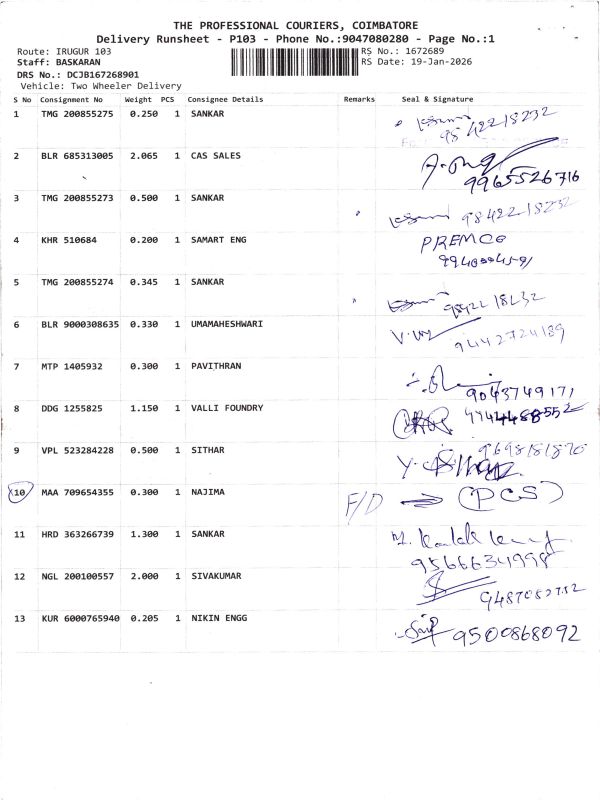 THE PROFESSIONAL COURIERS, COIMBATORE
Delivery Runsheet - P103 - Phone No.:9047080280 - Page No.:1
Route: IRUGUR 103
RS No.: 1672689
Staff: BASKARAN
RS Date: 19-Jan-2026
DRS No.: DCJB167268901
Vehicle: Two Wheeler Delivery
S No Consignment No Weight PCS Consignee Details Remarks Seal & Signature
1 TMG 200855275 0.250 1 SANKAR 98422 18232
2 BLR 685313005 2.065 1 CAS SALES 9965526716
3 TMG 200855273 0.500 1 SANKAR 98422 18232
4 KHR 510684 0.200 1 SAMART ENG PREMCO
5 TMG 200855274 0.345 1 SANKAR
6 BLR 9000308635 0.330 1 UMAMAHESHWARI 9442724189
7 MTP 1405932 0.300 1 PAVITHRAN 9043749171
8 DDG 1255825 1.150 1 VALLI FOUNDRY
9 VPL 523284228 0.500 1 SITHAR 9698181870
10 MAA 709654355 0.300 1 NAJIMA F/D → (PCS)
11 HRD 363266739 1.300 1 SANKAR
9566634998
12 NGL 200100557 2.000 1 SIVAKUMAR
13 KUR 6000765940 0.205 1 NIKIN ENGG 9500868092